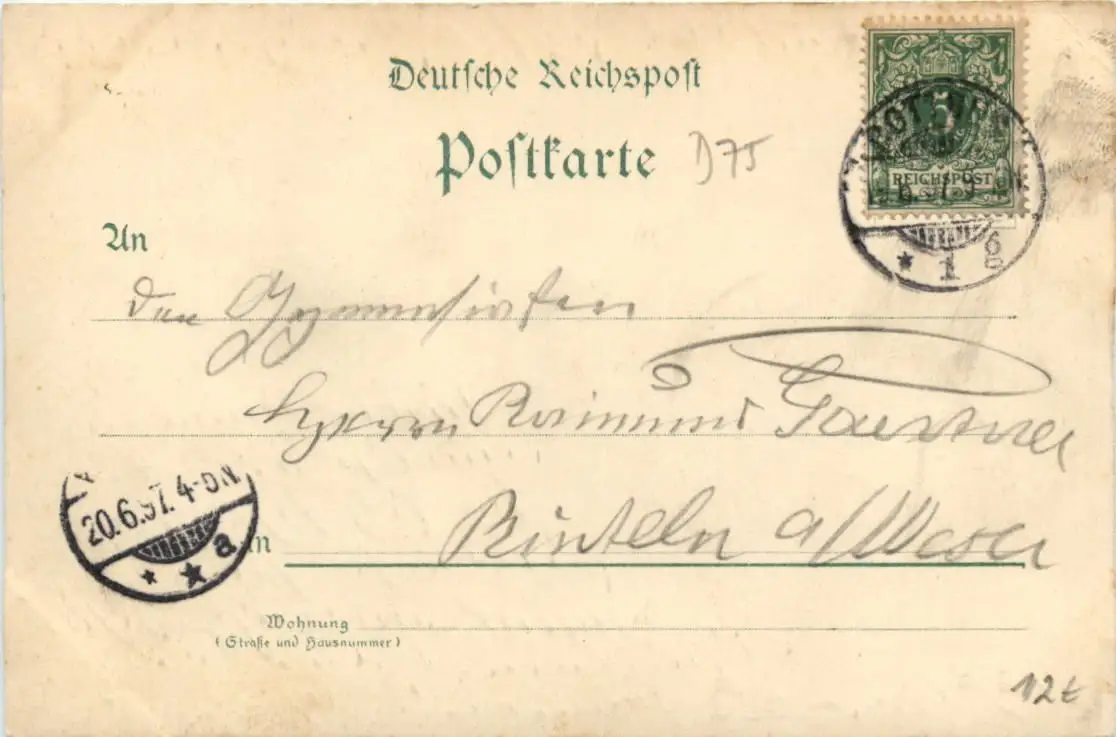 Deutsche Reichspost
Postkarte D75
5
REICHSPOST
* 1 g
An
den Gymnasiasten
Herrn Raimund
Rinteln a/Weser
20.6.97. 4-5N.
* * a
In
Wohnung
(Straße und Hausnummer)
12t